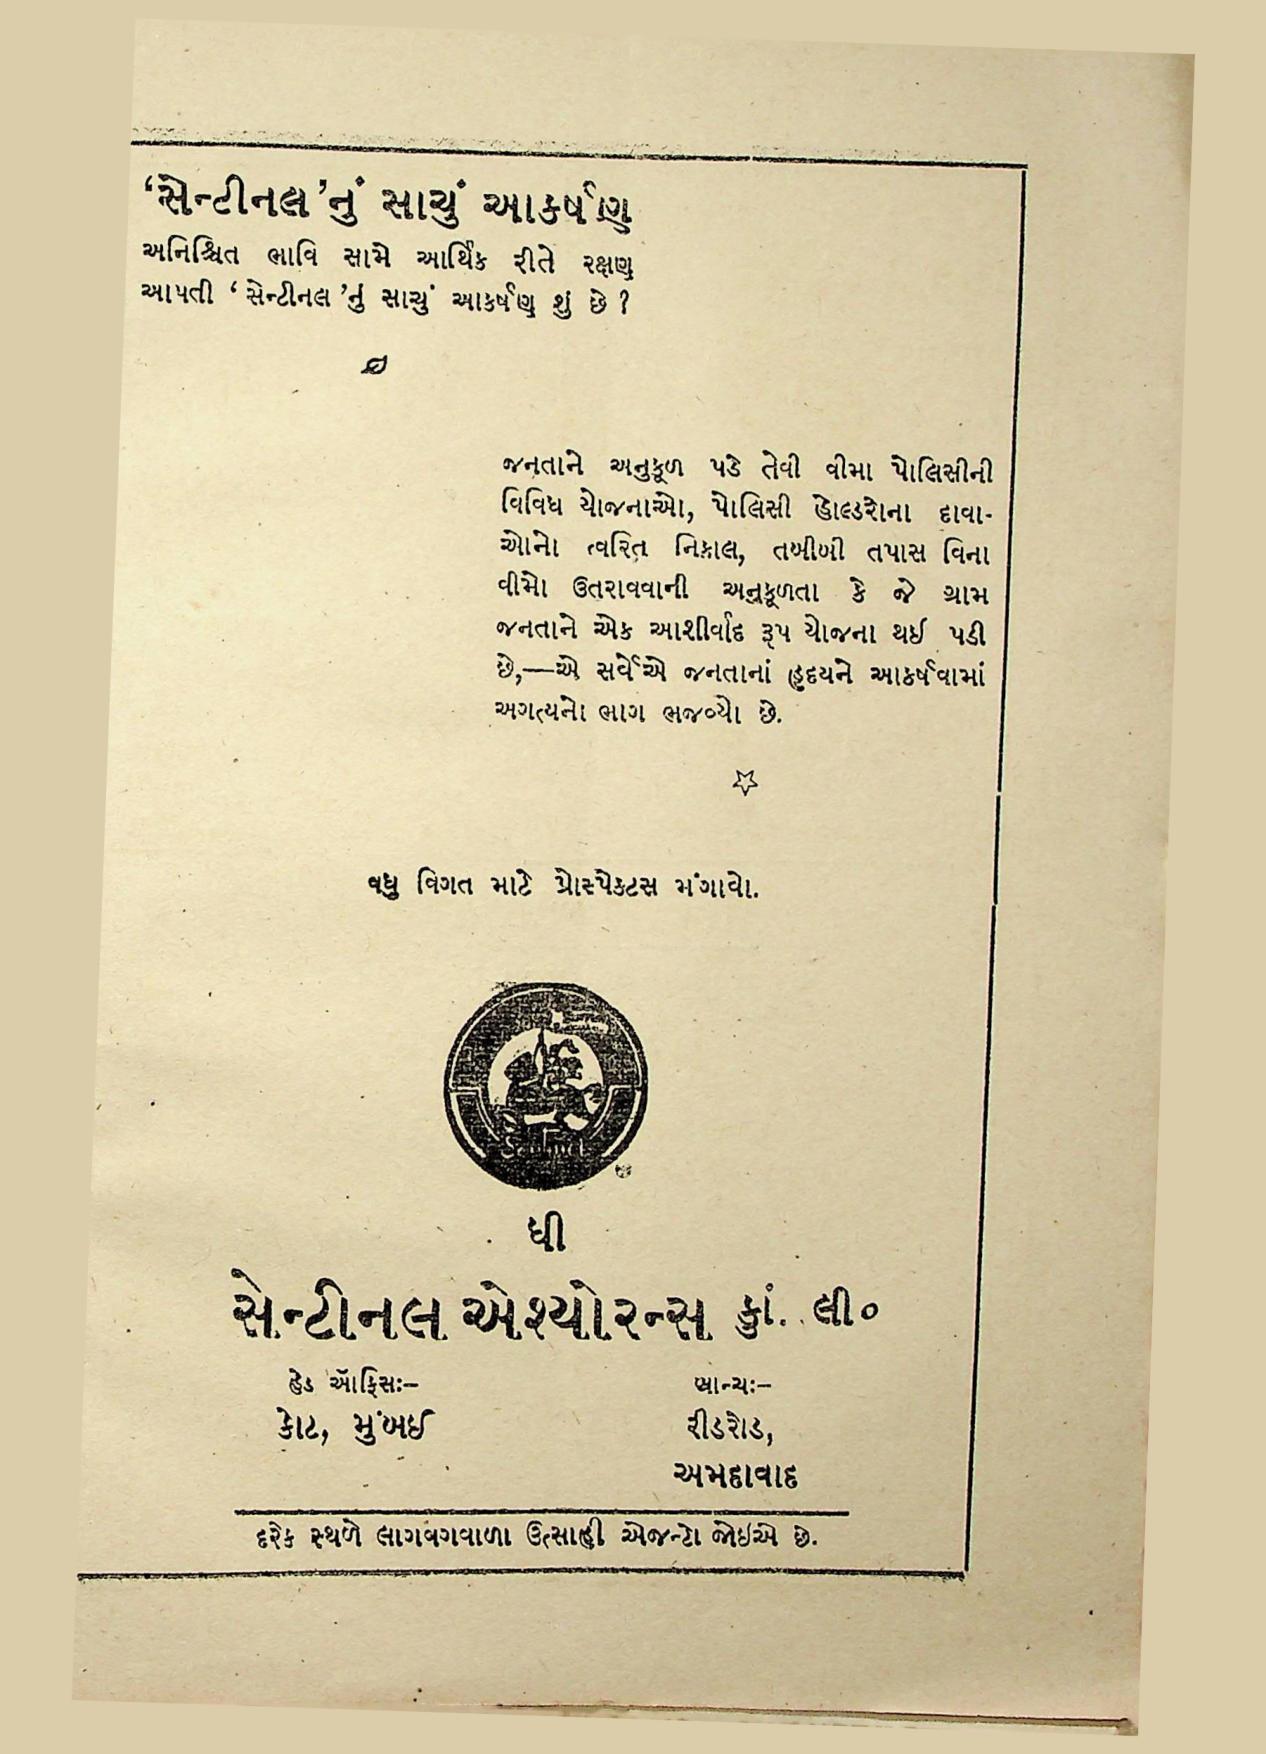 ‘સેન્ટીનલ’નું સાચું આકર્ષણ
અનિશ્ચિત ભાવિ સામે આર્થિક રીતે રક્ષણ
આપતી ‘સેન્ટીનલ’નું સાચું આકર્ષણ શું છે ?
જનતાને અનુકૂળ પડે તેવી વીમા પૉલિસીની
વિવિધ યોજનાઓ, પૉલિસી હોલ્ડરોના દાવા-
ઓનો ત્વરિત નિકાલ, તબીબી તપાસ વિના
વીમો ઉતરાવવાની અનુકૂળતા કે જે ગ્રામ
જનતાને એક આશીર્વાદ રૂપ યોજના થઈ પડી
છે,—એ સર્વેએ જનતાનાં હૃદયને આકર્ષવામાં
અગત્યનો ભાગ ભજવ્યો છે.
વધુ વિગત માટે પ્રોસ્પેક્ટસ મંગાવો.
Sentinel
ધી
સેન્ટીનલ એશ્યોરન્સ કું. લી૦
હેડ ઑફિસઃ–
બ્રાન્ચઃ–
કોટ, મુંબઈ
રીડરોડ,
અમદાવાદ
દરેક સ્થળે લાગવગવાળા ઉત્સાહી એજન્ટો જોઇએ છે.